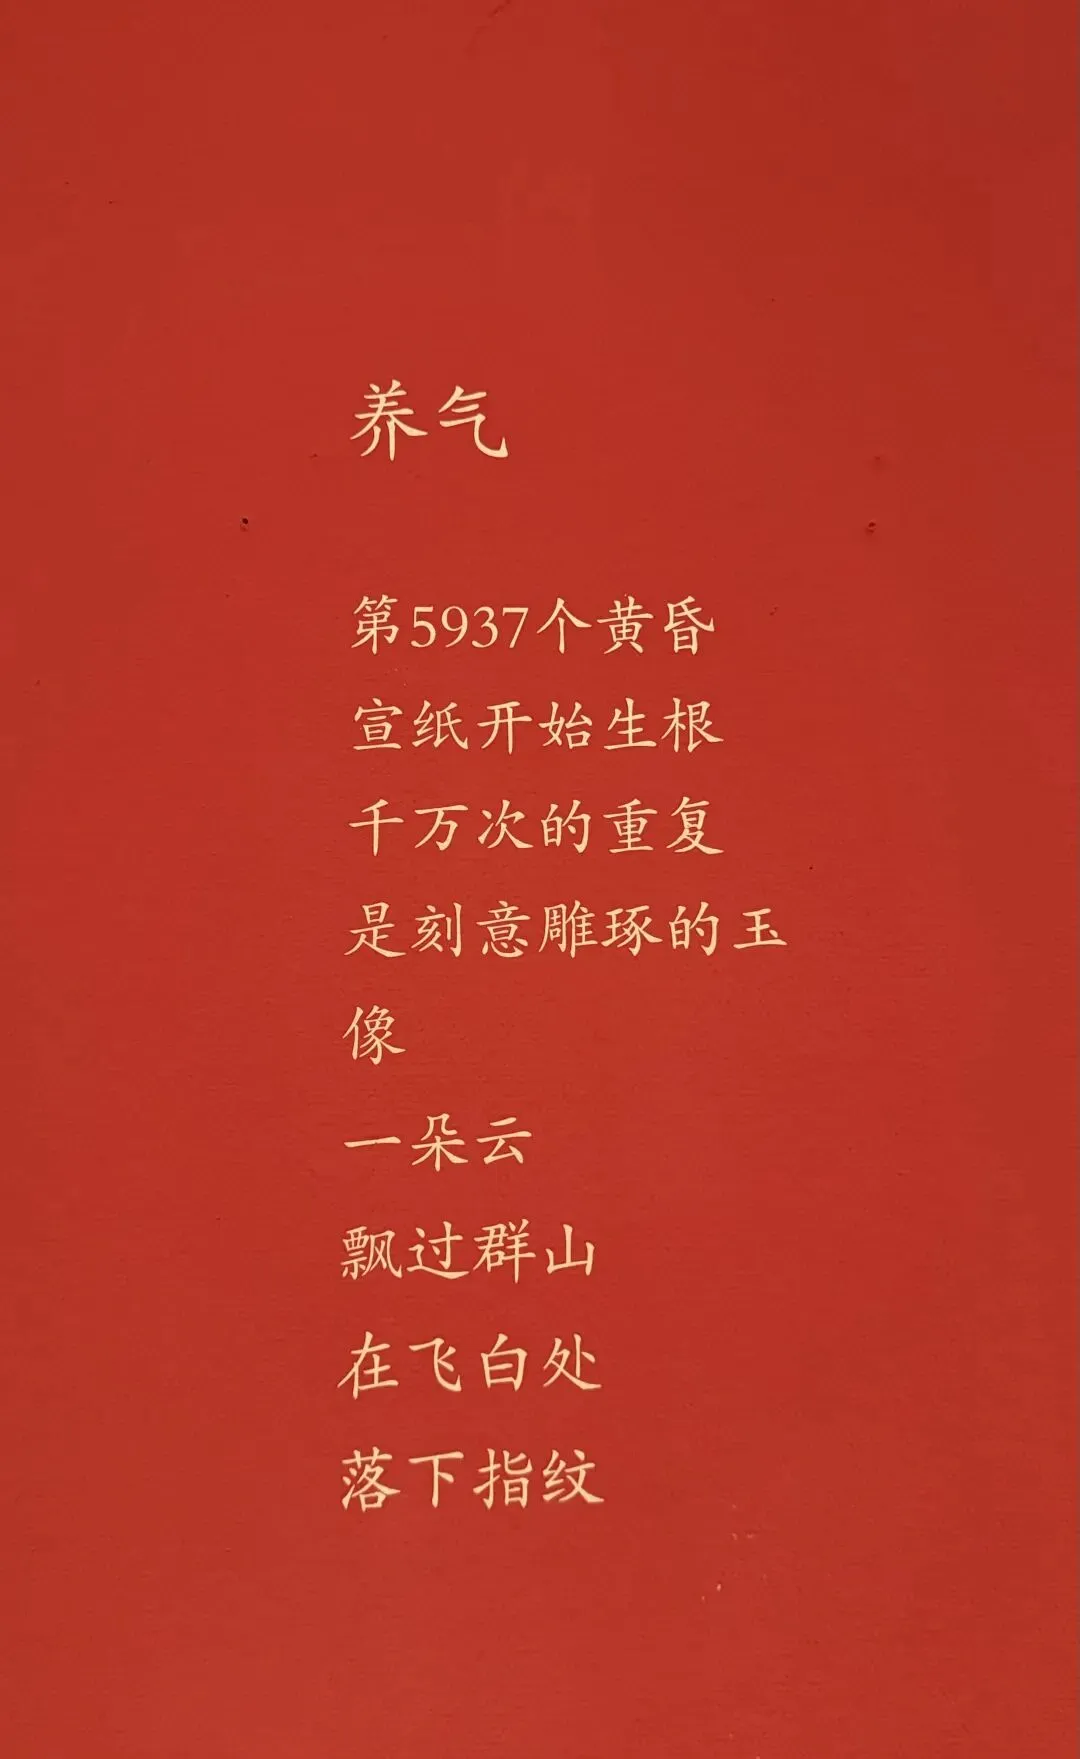 养气
第5937个黄昏
宣纸开始生根
千万次的重复
是刻意雕琢的玉
像
一朵云
飘过群山
在飞白处
落下指纹